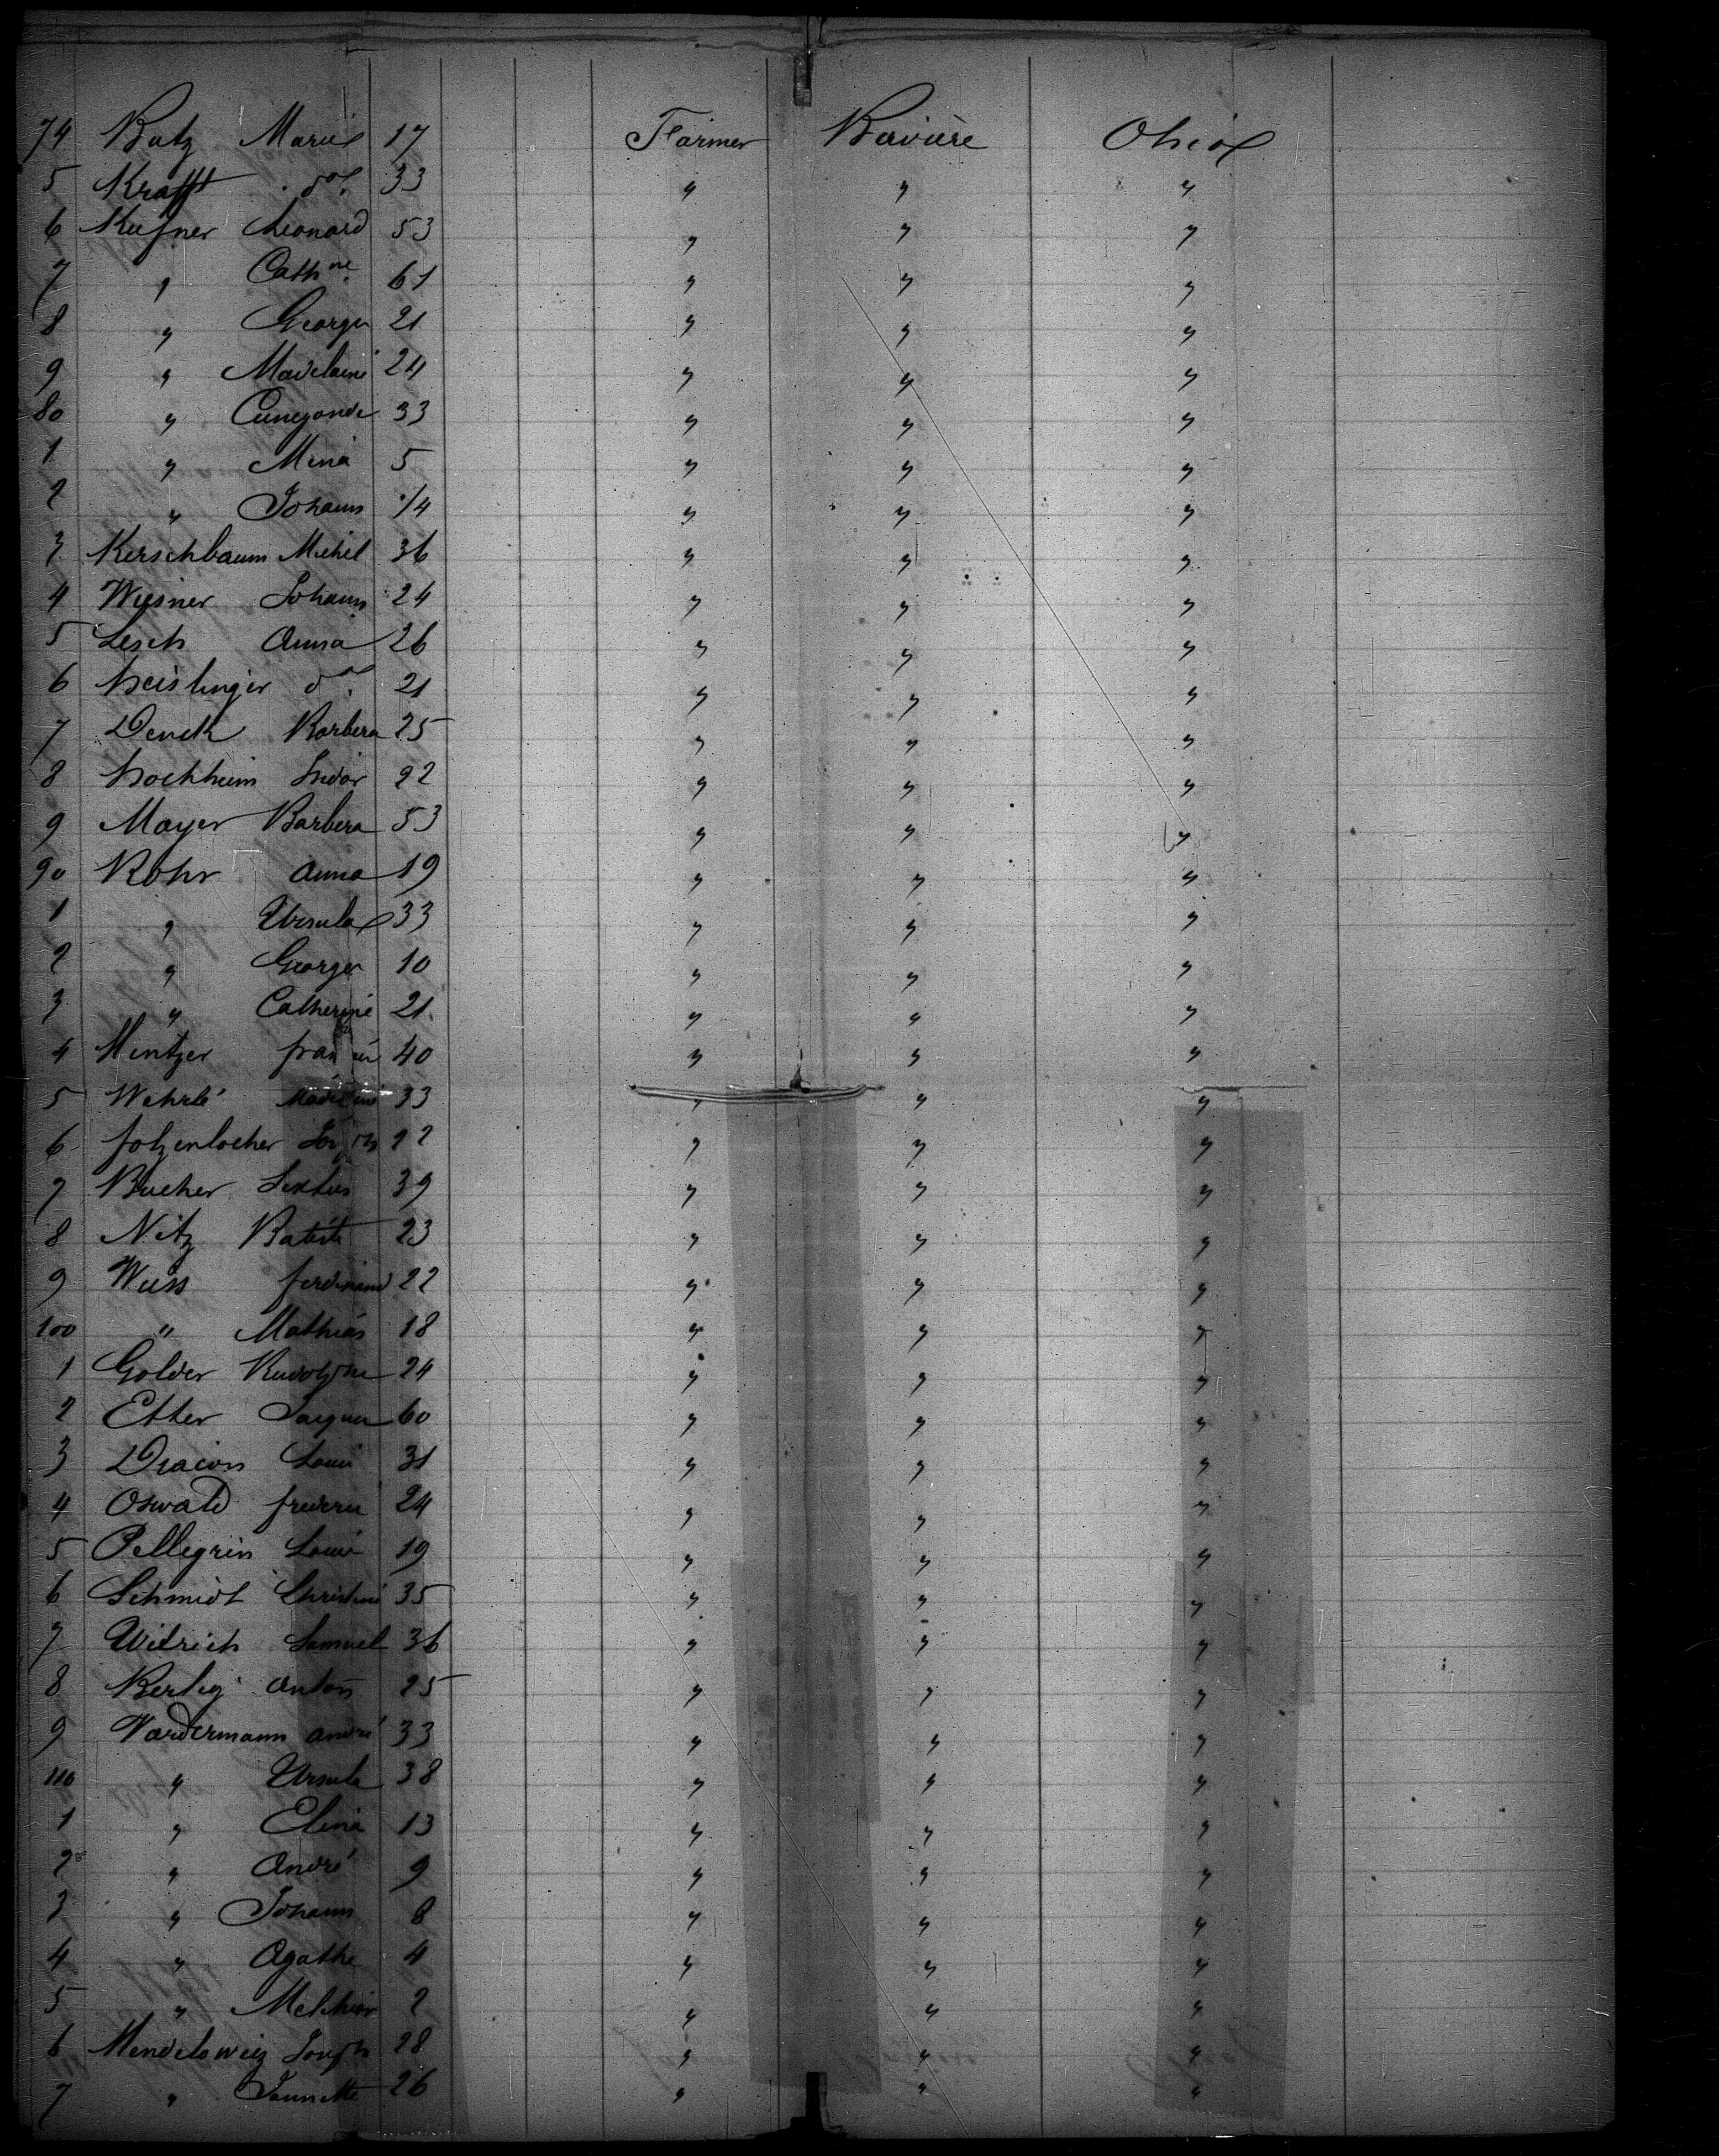 74 Butz Marie 17 Farmer Bavière Ohio
5 Krafft do. 33 " " "
6 Kufner Leonard 53 " " "
7 " Cathne. 61 " " "
8 " George 21 " " "
9 " Madelaine 24 " " "
80 " Cunegonde 33 " " "
1 " Mina 5 " " "
2 " Johann 1/4 " " "
3 Kerschbaum Michel 36 " " "
4 Wiesner Johann 24 " " "
5 Lesch Anna 26 " " "
6 Heislinger do. 21 " " "
7 Denck Barbera 25 " " "
8 Hochheim Isidor 22 " " "
9 Mayer Barbera 53 " " "
90 Rohr Anna 19 " " "
1 " Ursula 33 " " "
2 " George 10 " " "
3 " Catherine 21 " " "
4 Mintzer 40 " " "
5 Wehrlé Madeleine 33 " " "
6 Joseph 22 " " "
7 Bucher Sixtus 39 " " "
8 Nitz Batiste 23 " " "
9 Weiss ferdinand 22 " " "
100 " Mathias 18 " " "
1 Golder Rudolphe 24 " " "
2 Etter Jacques 60 " " "
3 Diacon Louis 31 " " "
4 Oswald frederic 24 " " "
5 Pellegrin Louis 19 " " "
6 Schmidt Christine 35 " " "
7 Widrich Samuel 36 " " "
8 Berley Anton 25 " " "
9 Vardermann André 33 " " "
110 " Ursula 38 " " "
1 " Elina 13 " " "
2 " André 9 " " "
3 " Johann 8 " " "
4 " Agathe 4 " " "
5 " Melchior 2 " " "
6 Mendelowicz Joseph 28 " " "
7 " Jannette 26 " " "